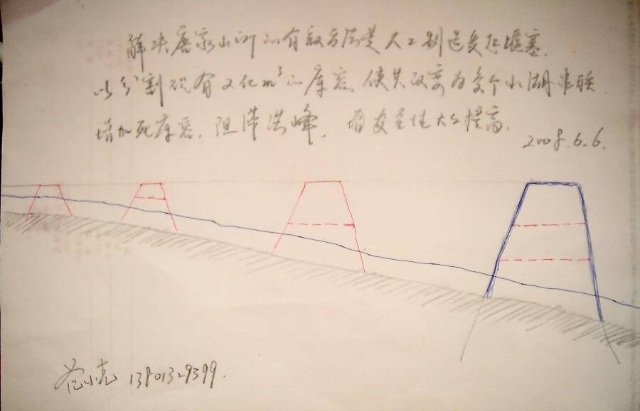 解决唐家山湖的有效方法是人工制造多道堰塞.
以分割现有2亿m³的库容,使其改变为多个小湖串联
增加死库容,阻滞洪峰,增安全性大大提高.
2008.6.6.
13901329399.